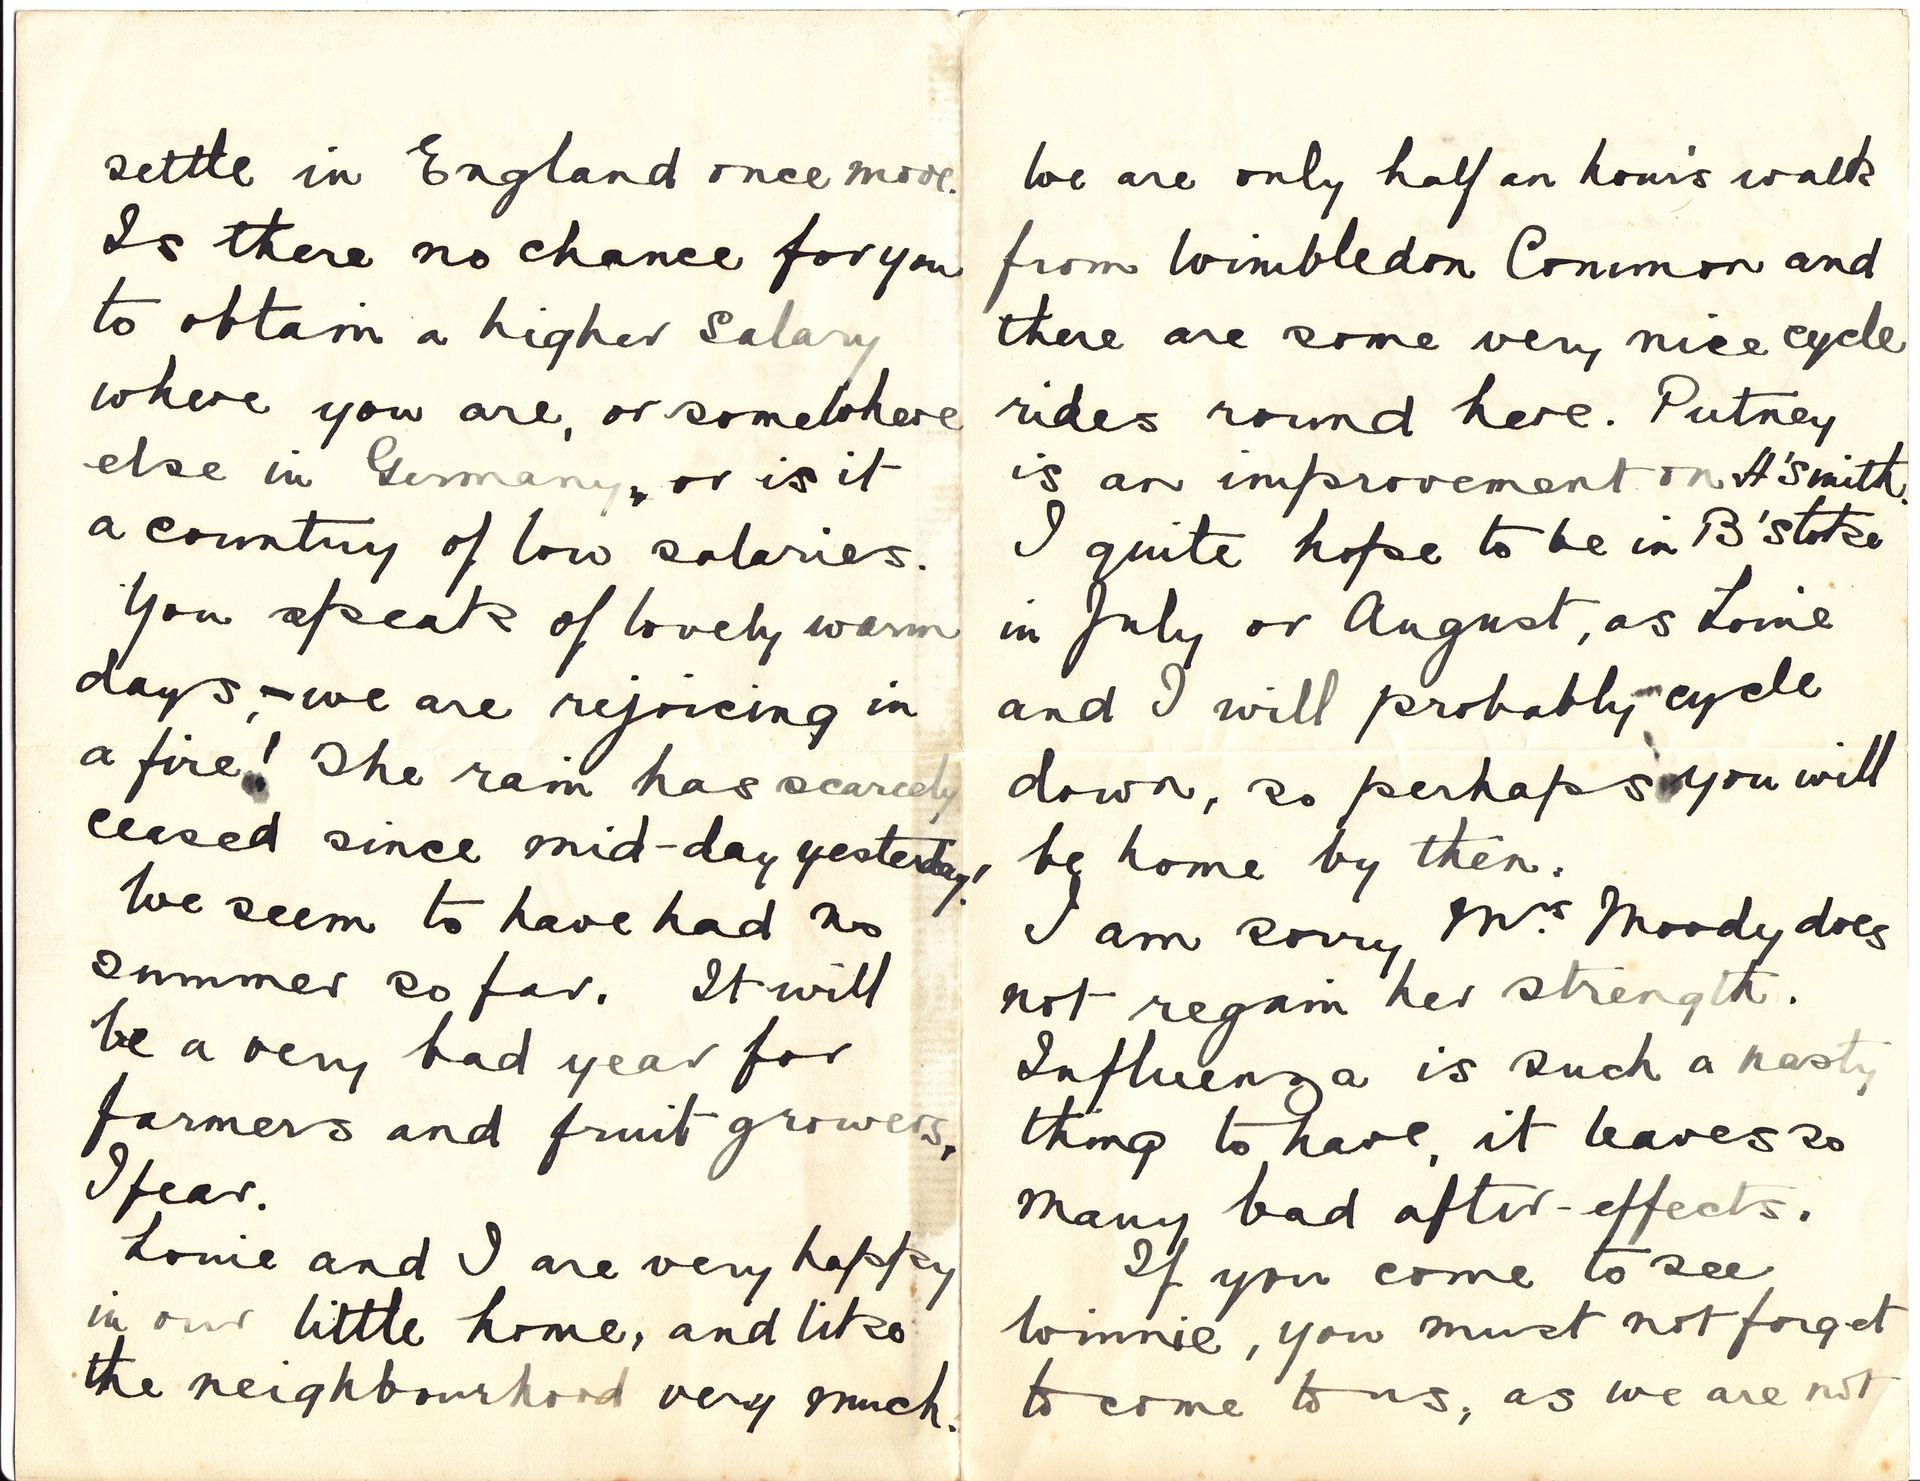 settle in England once more.
Is there no chance for you
to obtain a higher salary
where you are, or somewhere
else in Germany, or is it
a country of low salaries.
You speak of lovely warm
days, – we are rejoicing in
a fire! The rain has scarcely
ceased since mid-day yesterday!
We seem to have had no
summer so far. It will
be a very bad year for
farmers and fruit growers,
I fear.
Louie and I are very happy
in our little home, and like
the neighbourhood very much.
We are only half an hour's walk
from Wimbledon Common and
there are some very nice cycle
rides round here. Putney
is an improvement on H'smith.
I quite hope to be in B'stoke
in July or August, as Louie
and I will probably cycle
down, so perhaps you will
be home by then.
I am sorry Mrs Moody does
not regain her strength.
Influenza is such a nasty
thing to have, it leaves so
many bad after-effects.
If you come to see
Winnie, you must not forget
to come to us, as we are not